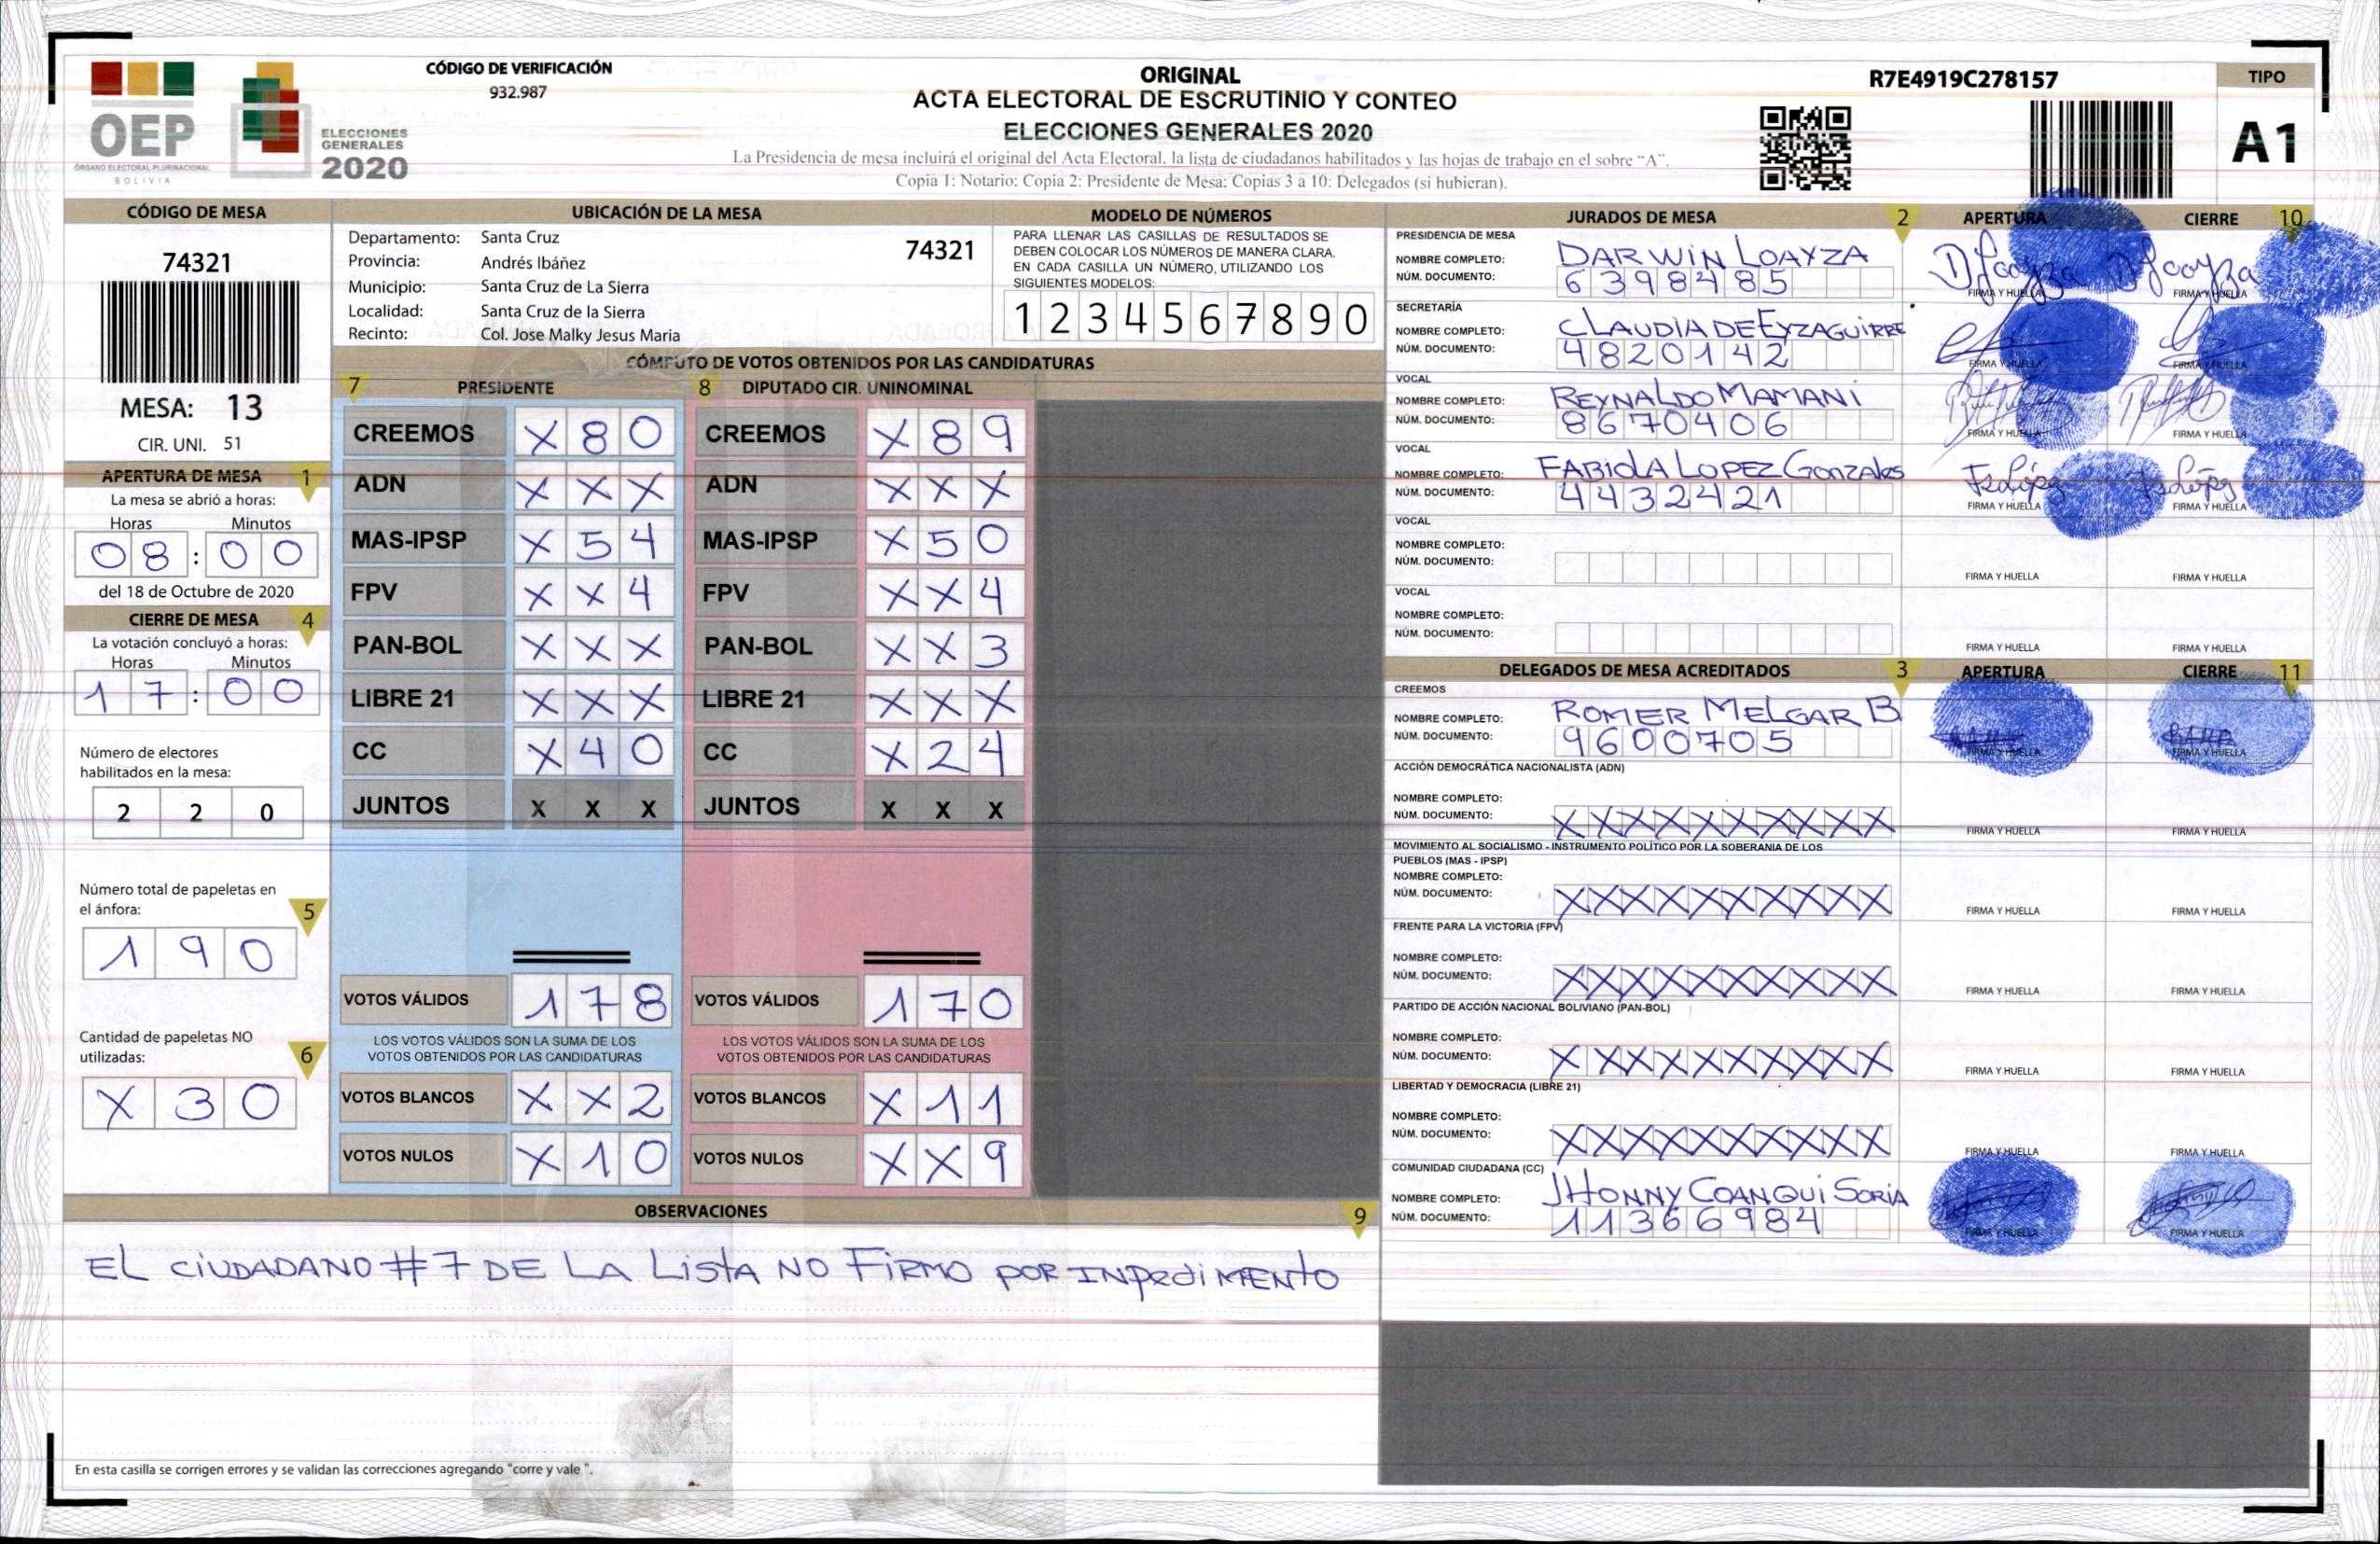 OEP
ÓRGANO ELECTORAL PLURINACIONAL
BOLIVIA
ELECCIONES
GENERALES
2020
CÓDIGO DE VERIFICACIÓN
932.987
ORIGINAL
ACTA ELECTORAL DE ESCRUTINIO Y CONTEO
ELECCIONES GENERALES 2020
La Presidencia de mesa incluirá el original del Acta Electoral, la lista de ciudadanos habilitados y las hojas de trabajo en el sobre "A".
Copia 1: Notario: Copia 2: Presidente de Mesa: Copias 3 a 10: Delegados (si hubieran).
R7E4919C278157
TIPO
A1
CÓDIGO DE MESA
74321
MESA: 13
CIR. UNI. 51
APERTURA DE MESA 1
La mesa se abrió a horas:
Horas Minutos
08:00
del 18 de Octubre de 2020
CIERRE DE MESA 4
La votación concluyó a horas:
Horas Minutos
17:00
Número de electores
habilitados en la mesa:
2 2 0
Número total de papeletas en
el ánfora: 5
1 9 0
Cantidad de papeletas NO
utilizadas: 6
X 3 0
UBICACIÓN DE LA MESA
Departamento: Santa Cruz 74321
Provincia: Andrés Ibáñez
Municipio: Santa Cruz de La Sierra
Localidad: Santa Cruz de la Sierra
Recinto: Col. Jose Malky Jesus Maria
MODELO DE NÚMEROS
PARA LLENAR LAS CASILLAS DE RESULTADOS SE
DEBEN COLOCAR LOS NÚMEROS DE MANERA CLARA.
EN CADA CASILLA UN NÚMERO, UTILIZANDO LOS
SIGUIENTES MODELOS:
1 2 3 4 5 6 7 8 9 0
CÓMPUTO DE VOTOS OBTENIDOS POR LAS CANDIDATURAS
7 PRESIDENTE 8 DIPUTADO CIR. UNINOMINAL
CREEMOS X 8 0 CREEMOS X 8 9
ADN X X X ADN X X X
MAS-IPSP X 5 4 MAS-IPSP X 5 0
FPV X X 4 FPV X X 4
PAN-BOL X X X PAN-BOL X X 3
LIBRE 21 X X X LIBRE 21 X X X
CC X 4 0 CC X 2 4
JUNTOS X X X JUNTOS X X X
VOTOS VÁLIDOS 1 7 8 VOTOS VÁLIDOS 1 7 0
LOS VOTOS VÁLIDOS SON LA SUMA DE LOS LOS VOTOS VÁLIDOS SON LA SUMA DE LOS
VOTOS OBTENIDOS POR LAS CANDIDATURAS VOTOS OBTENIDOS POR LAS CANDIDATURAS
VOTOS BLANCOS X X 2 VOTOS BLANCOS X 1 1
VOTOS NULOS X 1 0 VOTOS NULOS X X 9
OBSERVACIONES 9
EL CIUDADANO #7 DE LA LISTA NO FIRMO POR INPEDIMENTO
En esta casilla se corrigen errores y se validan las correcciones agregando "corre y vale ".
JURADOS DE MESA 2 APERTURA CIERRE 10
PRESIDENCIA DE MESA
NOMBRE COMPLETO: DARWIN LOAYZA
NÚM. DOCUMENTO: 6398485 FIRMA Y HUELLA FIRMA Y HUELLA
SECRETARÍA
NOMBRE COMPLETO: CLAUDIA DE EYZAGUIRRE
NÚM. DOCUMENTO: 4820142 FIRMA Y HUELLA FIRMA Y HUELLA
VOCAL
NOMBRE COMPLETO: REYNALDO MAMANI
NÚM. DOCUMENTO: 8670406 FIRMA Y HUELLA FIRMA Y HUELLA
VOCAL
NOMBRE COMPLETO: FABIOLA LOPEZ Gonzales
NÚM. DOCUMENTO: 4432421 FIRMA Y HUELLA FIRMA Y HUELLA
VOCAL
NOMBRE COMPLETO:
NÚM. DOCUMENTO: FIRMA Y HUELLA FIRMA Y HUELLA
VOCAL
NOMBRE COMPLETO:
NÚM. DOCUMENTO: FIRMA Y HUELLA FIRMA Y HUELLA
DELEGADOS DE MESA ACREDITADOS 3 APERTURA CIERRE 11
CREEMOS
NOMBRE COMPLETO: ROMER MELGAR B
NÚM. DOCUMENTO: 9600705 FIRMA Y HUELLA FIRMA Y HUELLA
ACCIÓN DEMOCRÁTICA NACIONALISTA (ADN)
NOMBRE COMPLETO:
NÚM. DOCUMENTO: XXXXXXXXXX FIRMA Y HUELLA FIRMA Y HUELLA
MOVIMIENTO AL SOCIALISMO - INSTRUMENTO POLÍTICO POR LA SOBERANIA DE LOS
PUEBLOS (MAS - IPSP)
NOMBRE COMPLETO:
NÚM. DOCUMENTO: XXXXXXXXXX FIRMA Y HUELLA FIRMA Y HUELLA
FRENTE PARA LA VICTORIA (FPV)
NOMBRE COMPLETO:
NÚM. DOCUMENTO: XXXXXXXXXX FIRMA Y HUELLA FIRMA Y HUELLA
PARTIDO DE ACCIÓN NACIONAL BOLIVIANO (PAN-BOL)
NOMBRE COMPLETO:
NÚM. DOCUMENTO: XXXXXXXXXX FIRMA Y HUELLA FIRMA Y HUELLA
LIBERTAD Y DEMOCRACIA (LIBRE 21)
NOMBRE COMPLETO:
NÚM. DOCUMENTO: XXXXXXXXXX FIRMA Y HUELLA FIRMA Y HUELLA
COMUNIDAD CIUDADANA (CC)
NOMBRE COMPLETO: JHONNY COANQUI SORIA
NÚM. DOCUMENTO: 11366984 FIRMA Y HUELLA FIRMA Y HUELLA